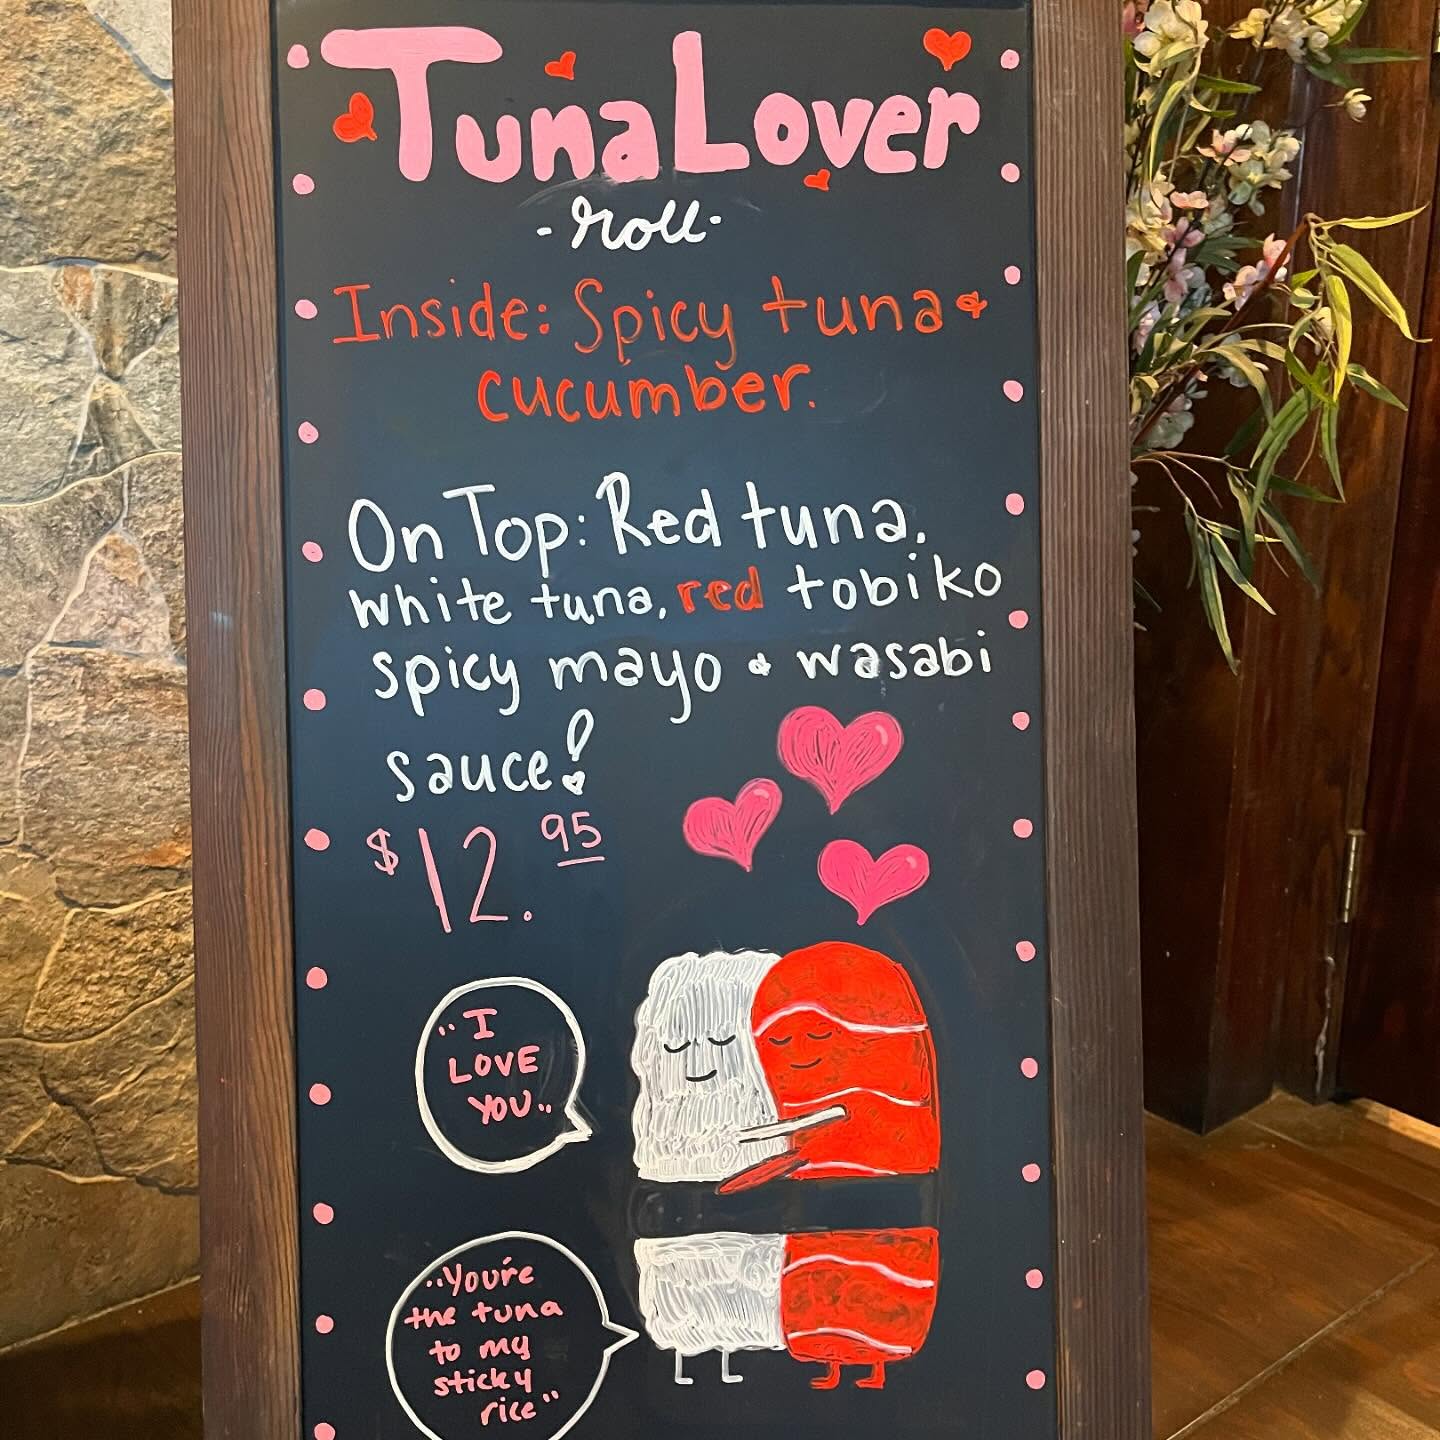 Tuna Lover
-roll-
Inside: Spicy tuna &
cucumber.
On Top: Red tuna,
white tuna, red tobiko
spicy mayo & wasabi
sauce!
$12.95
"I
LOVE
YOU"
"You're
the tuna
to my
sticky
rice"